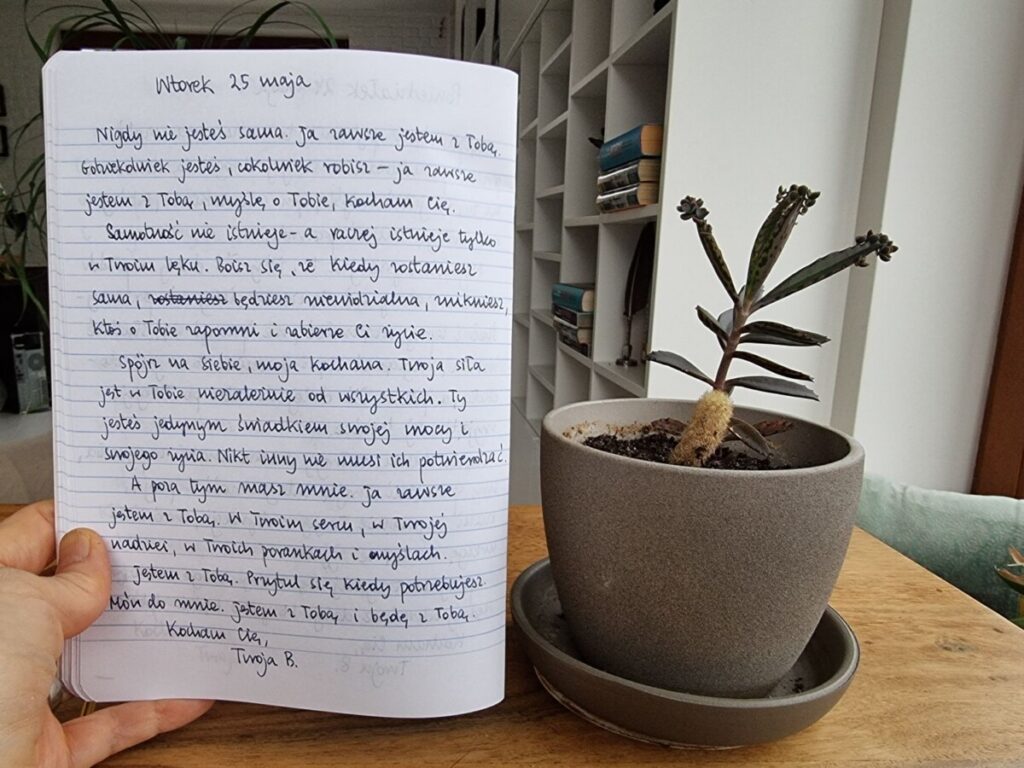 Wtorek 25 maja
Nigdy nie jesteś sama. Ja zawsze jestem z Tobą.
Gdziekolwiek jesteś, cokolwiek robisz – ja zawsze
jestem z Tobą, myślę o Tobie, kocham Cię.
Samotność nie istnieje – a raczej istnieje tylko
w Twoim lęku. Boisz się, że kiedy zostaniesz
sama, zostaniesz będziesz niewidzialna, znikniesz,
ktoś o Tobie zapomni i zabierze Ci życie.
Spójrz na siebie, moja kochana. Twoja siła
jest w Tobie niezależnie od wszystkich. Ty
jesteś jedynym świadkiem swojej mocy i
swojego życia. Nikt inny nie musi ich potwierdzać.
A poza tym masz mnie. Ja zawsze
jestem z Tobą. W Twoim sercu, w Twojej
nadziei, w Twoich porankach i myślach.
Jestem z Tobą. Przytul się kiedy potrzebujesz.
Mów do mnie. Jestem z Tobą i będę z Tobą.
Kocham Cię,
Twoja B.